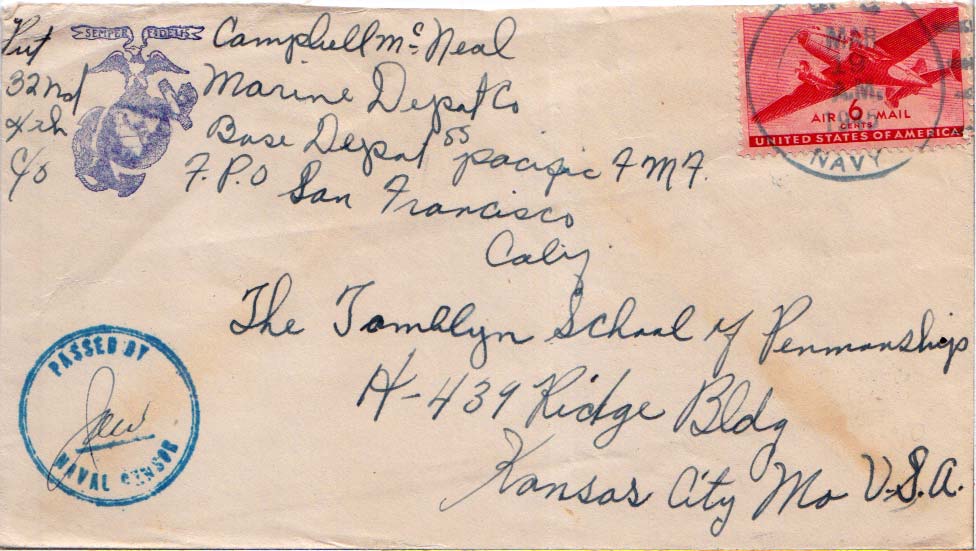 SEMPER FIDELIS
Pvt Campbell Mc Neal
32nd Marine Depot Co
4th Base Depot 55 pacific F M F.
c/o F.P.O San Francisco
Calif
MAR
19
A.M.
1945
NAVY
AIR 6 MAIL
CENTS
UNITED STATES OF AMERICA
The Tamblyn School of Penmanship
H-439 Ridge Bldg
Kansas City Mo U.S.A.
PASSED BY
NAVAL CENSOR